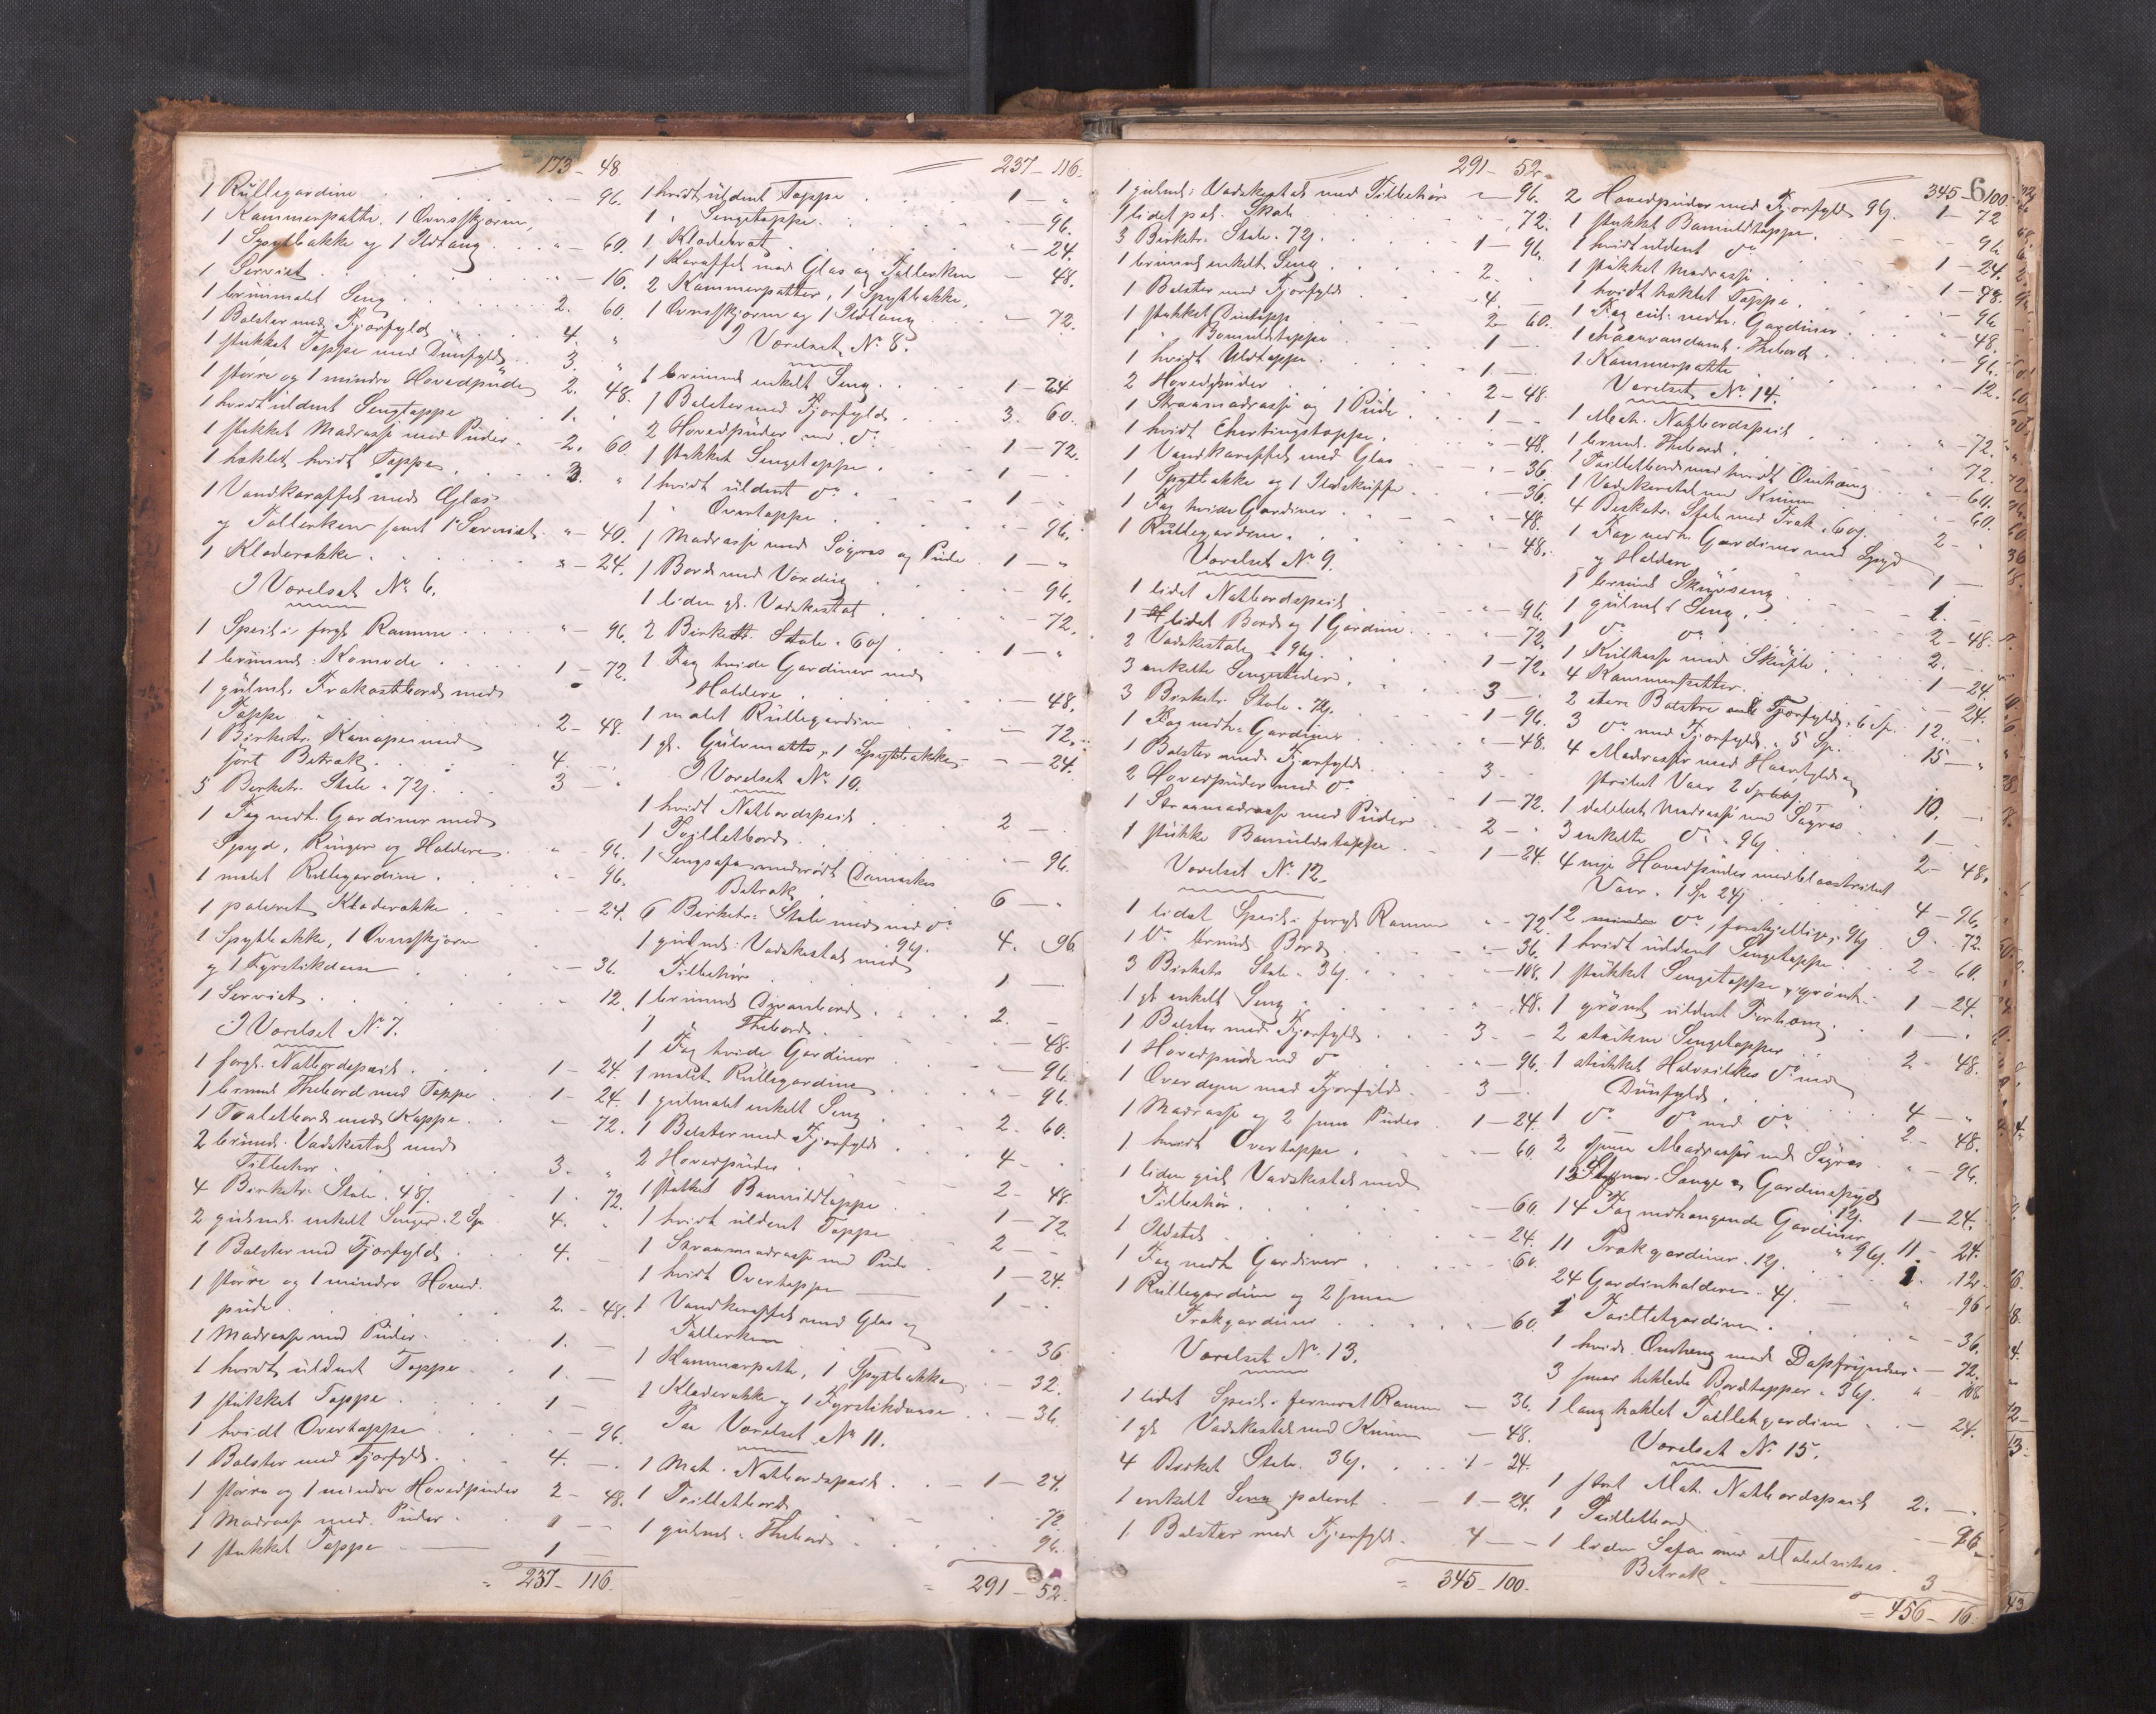 173 - 48
1 Rullegardin . . . " - 96.
1 Kammerpotte, 1 Ovnsskjærm,
1 Spytbakke og 1 Ildtang . . " - 60.
1 Serviet . . . " - 16.
1 brunmalet Seng . . . 2. 60.
1 Bolster med Fjærfyld . . 4. "
1 stukket Tæppe med Dunfyld . . 3. "
1 større og 1 mindre Hovedpude 2. 48.
1 hvidt uldent Sengtæppe 1. "
1 stukket Madrasse med Puder . - 2. 60.
1 hæklet hvidt Tæppe . . . 3. "
1 Vandkaraffel med Glas
og Tallerken samt 1 Serviet . " - 40.
1 Kladerække . . . " - 24.
I Værelset No 6.
1 Speil i forgt Ramme . . " - 96.
1 brunmt: Komode . . . 1 - 72.
1 gulmt. Frokostbord med
Tæppe . . . 2 - 48.
1 Birketr. Kanape med
sort Betræk . . . 4. -
5 Birketr. Stole a 72 s. . 3 - "
1 Fag nedh. Gardiner med
Spyd, Ringer og Holdere . " - 96.
1 malet Rullegardin . " 96.
1 poleret Kladerække . . - 24.
1 Spytbakke, 1 Ovnsskjærm
og 1 Fyrstikdaase . . . - 36.
1 Serviet . . . " 12.
I Værelset No 7.
1 forgt. Natbordspeil . . 1 - 24.
1 brunmt Thebord med Tæppe . 1 - 24.
1 Toaletbord med Kappe . . - 72.
2 brunmt. Vadskestol med
Tilbehør . . . 3. "
4 Birketr. Stole a 48 s. . 1. 72.
2 gulmt. enkelt Senger a 2 Sp 4. "
1 Bolster med Fjærfyld . 4. -
1 større og 1 mindre Hoved-
pude . . . 2. - 48.
1 Madrasse med Puder . . 1. -
1 hvidt uldent Tæppe . . 1. -
1 stukket Tæppe . . . 1 -
1 hvidt Overtæppe . . . - 96.
1 Bolster med Fjærfyld . . 4. -
1 større og 1 mindre Hovedpuder 2 - 48.
1 Madrasse med Puder . 1 - -
1 stukket Tæppe . . 1 -
= 237 - 116.
237 - 116.
1 hvidt uldent Tæppe . . 1 - "
1 " Sengetæppe . . . " - 96.
1 Kladebræt . . . " - 24.
1 Karaffel med Glas og Tallerken - 48.
2 Kammerpotter, 1 Spytbakke,
1 Ovnsskjærm og 1 Ildtang . - 72.
I Værelset No 8.
1 brunmt enkelt Seng . . 1 - 24
1 Bolster med Fjærfyld . 3. 60.
2 Hovedpuder med do . 1 - 72.
1 stukket Sengetæppe . . 1 -
1 hvidt uldent do . . 1 - "
1 " Overtæppe . . . " - 96.
1 Madrasse med Søgræs og Pude . 1 - "
1 Bord med Voxdug . . . - 96.
1 liden gl. Vadskestol . . . - 72.
2 Birketr. Stole a 60 s . . 1 - "
1 Fag hvide Gardiner med
Holdere . . . - 48.
1 malet Rullegardin . . - 72.
1 gl. Gulvmatte, 1 Spytbakke - - 24.
I Værelset No 10.
1 hvidt Natbordspeil . . 2 - .
1 Toilletbord . . . - 96.
1 Sengsofa med rødt Damaskes
Betræk . . . 6 - "
6 Birketr: Stole med med do
a 96 s. 4. 96
1 gulmt: Vadskestol med
Tilbehør . . . 1 -
1 brunmt Divanbord . . 2. -
1 " Thebord . . . - 48.
1 Fag hvide Gardiner . . - 96.
1 malet Rullegardin . . " - 96.
1 gulmalet enkelt Seng . . 2. 60.
1 Bolster med Fjærfyld . . 4 -
2 Hovedpuder . . . 2 - 48.
1 stukket Bomuldstæppe . 1 - 72.
1 hvidt uldent Tæppe . 2 - -
1 Straamadrasse med Pude . 1 - 24.
1 hvidt Overtæppe . 1 - .
1 Vandkaraffel med Glas og
Tallerken . . . 36
1 Kammerpotte, 1 Spytbakke . - 32.
1 Kladerække og 1 Fyrstikdaase . - 36.
Paa Værelset No 11.
1 Mah. Natbordspeil . . - 1 - 24.
1 Toilletbord . . . 72.
1 gulmt. Thebord . . . 96.
= 291 - 52.
291 - 52.
1 gulmt: Vadskestol med Tilbehør " - 96.
1 lidet pol. Skab . . . " 72.
3 Birketr. Stole a 72 s. . 1 - 96.
1 brunmt enkelt Seng . . 2. .
1 Bolster med Fjærfyld . - 4. -
1 stukket Duntæppe . . 2 - 60.
1 " Bomuldstæppe . . 1 - .
1 hvidt Uldtæppe . . 1. -
2 Hovedpuder . . . 2 - 48.
1 Straamadrasse og 1 Pude . 1 - .
1 hvidt Shertingstæppe . . " - 48.
1 Vandkaraffel med Glas . . " - 36.
1 Spytbakke og 1 Ildskuffe . " - 36.
1 Fag hvide Gardiner . . - 48.
1 Rullegardin . . . - 48.
Værelset No 9.
1 lidet Natbordspeil . . " - 96.
1 lidet Bord og 1 Gardin . " 72.
2 Vadskestole a 96 s. . 1 - 72.
3 enkelte Sengesteder . . 3 - .
3 Birketr. Stole a 72 s. . 1 - 96.
1 Fag nedh. Gardiner . . " - 48.
1 Bolster med Fjærfyld . 3 - .
2 Hovedpuder med do . 1 - 72.
1 Straamadrasse med Puder . 2 - .
1 stukke Bomuldstæppe . . 1 - 24.
Værelset No 12.
1 lidet Speil i forgt Ramme " - 72.
1 do brunmt Bord . . " - 36.
3 Birketr Stole a 36 s. . . - 108.
1 gl enkelt Seng . . . " - 48.
1 Bolster med Fjærfyld . 3 - -
1 Hovedpude med do . . " - 96.
1 Overdyne med Fjærfyld . 3 -
1 Madrasse og 2 smaa Puder . 1 - 24.
1 hvidt Overtæppe . . . - 60.
1 liden gul Vadskestol med
Tilbehør . . . - 60.
1 Ildsted . . . - 24.
1 Fag nedh Gardiner . . . 60.
1 Rullegardin og 2 smaa
Trækgardiner . . . - 60.
Værelset No 13.
1 lidet Speil i forneret Ramme - 36.
1 gl Vadskestol med Kumme - 48.
4 Birket Stole a 36 s. . . 1 - 24.
1 enkelt Seng poleret . . 1 - 24.
1 Bolster med Fjærfyld . 4 - -
= 345 - 100.
345 - 100.
6
2 Hovedpuder med Fjærfyld a 96 s. 1 - 72
1 stukket Bomuldstæppe . . - 96
1 hvidt uldent do . . 1 - 24.
1 stukket Madrasse . . 1 - 48.
1 hvidt hæklet Tæppe . . " - 96
1 Fag nedh. Gardiner . . . 48.
1 Thebord . . . - 96.
1 Kammerpotte . . . - 12.
Værelset No 14.
1 Mah. Natbordspeil . . " - 72.
1 brunmt. Thebord . . . 72.
1 Toilletbord med hvidt Omhæng . . " - 60.
1 Vadskestol med Kumme . . - 60.
4 Birketr. Stole med Træk a 60 s. 2 - .
1 Fag nedh. Gardiner med Spyd
og Holdere . . . 1 -
1 brunmt Skuvseng . . . 1. -
1 gulmt Seng . . . 2 - 48.
1 do do . . 2. -
1 Kulkasse med Skuffe . . 1 - 24.
4 Kammerpotter . . . - 24.
2 større Bolstre med Fjærfyld a 6 Sp. 12. -
3 do med Fjærfyld a 5 Sp. 15 - "
4 Madrasser med Haarfyld og
stribet Vaar a 2 Sp 60 s. 10. -
1 dobbelt Madrasse med Søgræs . 1 -
3 enkelte do a 96 s . 2 - 48.
4 nye Hovedpuder med blaastribet
Vaar a 1 Sp 24 s . 4 - 96.
12 mindre do forskjellige a 96 s 9. 72
1 hvidt uldent Sengetæppe . . 2 - 60.
1 stukket Sengetæppe, grønt . 1 - 24.
1 grønt uldent Forhæng . . 1 - .
2 stukne Sengetæpper . . 2 - 48.
1 stukket Halvsilkes do med
Dunfyld . . . 4 - "
1 do do med do . . 2 - 48.
2 smaa Madrasser med Søgræs . " - 96.
12 Senge og Gardinspyd
a 12 s. 1 - 24.
14 Fag nedhængende Gardiner a 96 s. 11 - 24.
11 Trækgardiner a 12 s. . 1. 12.
24 Gardinholdere a 4 s. - " 96
1 Toilletgardin . . . - 36.
1 hvidt Omhæng med - 72.
3 smaa hæklede Bordtæpper a 36 s. " 108
1 lang hæklet Toilletgardin . . - 24.
Værelset No 15.
1 stort Mah. Natbordspeil 2. -
1 Toilletbord . . . - 96.
1 liden Sofa med
Betræk . . . 3 -
= 456 - 16.